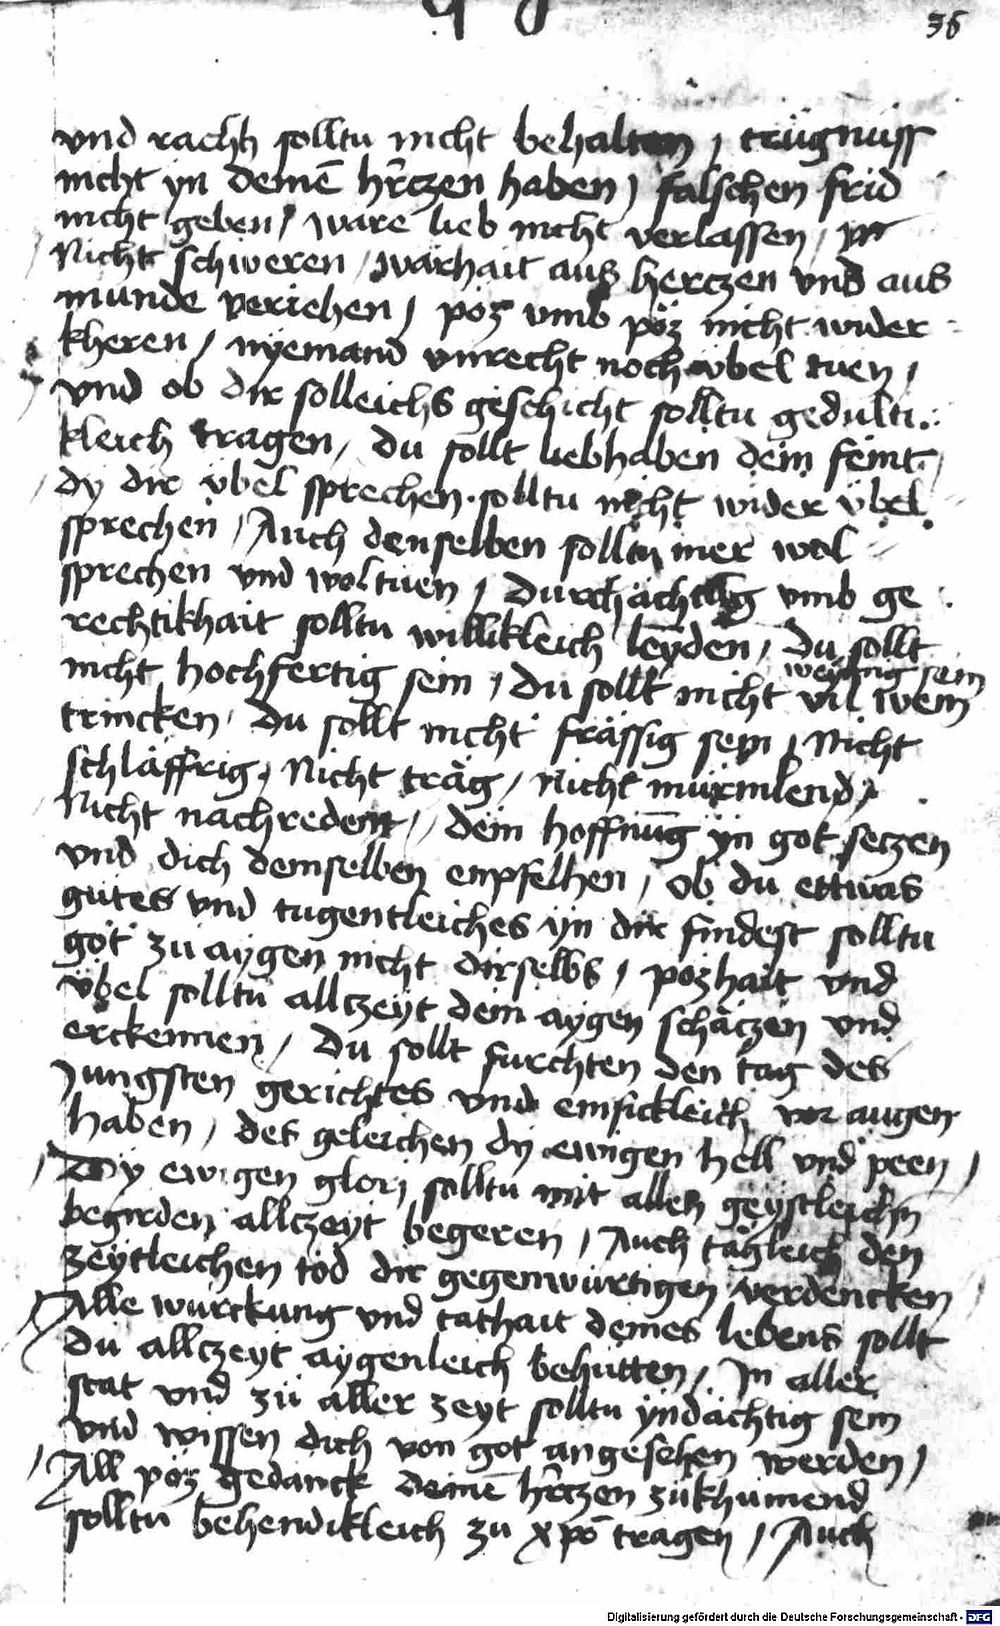 36
vnd rachh solltu nicht behalten / trügnuss
nicht yn deinē hr̄czen haben / falschen frid
nicht geben / ware lieb nicht verlassen /
Nicht schweren / warhait aus herczen vnd aus
munde veriehen / poz vmb pöz nicht wider
kheren / nyemand vnrecht noch vbel tuen /
vnd ob dir solleichs geschicht solltu gedulti
kleich tragen / du sollt liebhaben dein feint /
dy dir vbel sprechen solltu nicht wider übel
sprechen / Auch denselben solltu mer wol
sprechen vnd wol tuen / durchächtung vmb ge
rechtikhait solltu willikleich leyden / du sollt
nicht hochfertig sein / du sollt nicht vil wein
weynnig sein
trincken / du sollt nicht frässig sein / Nicht
schläffrig / Nicht träg / Nicht mürmlend /
Nicht nachredent / dein hoffnūg yn got seczen
vnd dich demselben enpfelhen / ob du ettwas
gutes vnd tugentleiches yn dir findest solltu
got zu aygen nicht dirselbs / pozhait vnd
übel solltu allczeyt dein aygen schäczen vnd
erckennen / Du sollt furchten den tag des
Jungsten gerichtes vnd emsickleich vor augen
haben / des geleichen dy ewigen hell vnd peen /
Dy ewigen glorj solltu mit allen geystleichn
begirden allczeyt begeren / Auch tägleich den
zeytleichen tod dir gegenwurtigen verdencken
Alle würckung vnd tathait deines lebens sollt
du allczeyt aygenleich behutten / In aller
stat vnd zü aller zeyt solltu yndächtig sein
vnd wissen dich von got angesehen werden /
All poz gedanck deinē hr̄czen zükhumend
solltu behendikleich zu xpō tragen / Auch
Digitalisierung gefördert durch die Deutsche Forschungsgemeinschaft - DFG